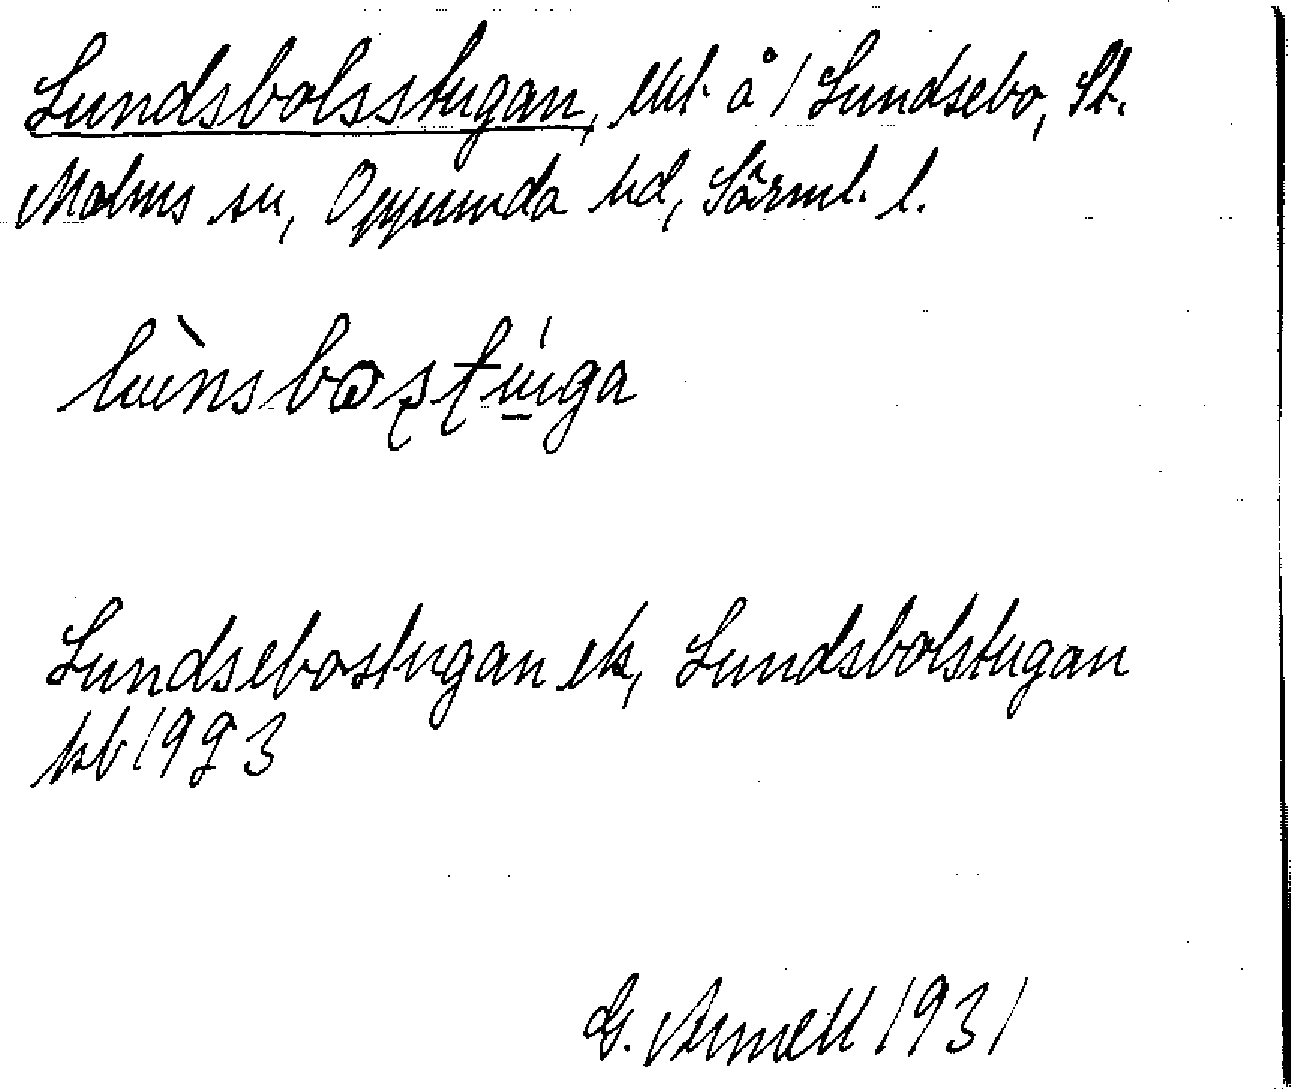 Lundsbolsstugan, lht. å 1 Lundsebo, St.
Malms sn, Oppunda hd, Sörml. l.
lùnsbostúga
Lundsebostugan ek, Lundsbolstugan
kb 1923
G. Vernell 1931